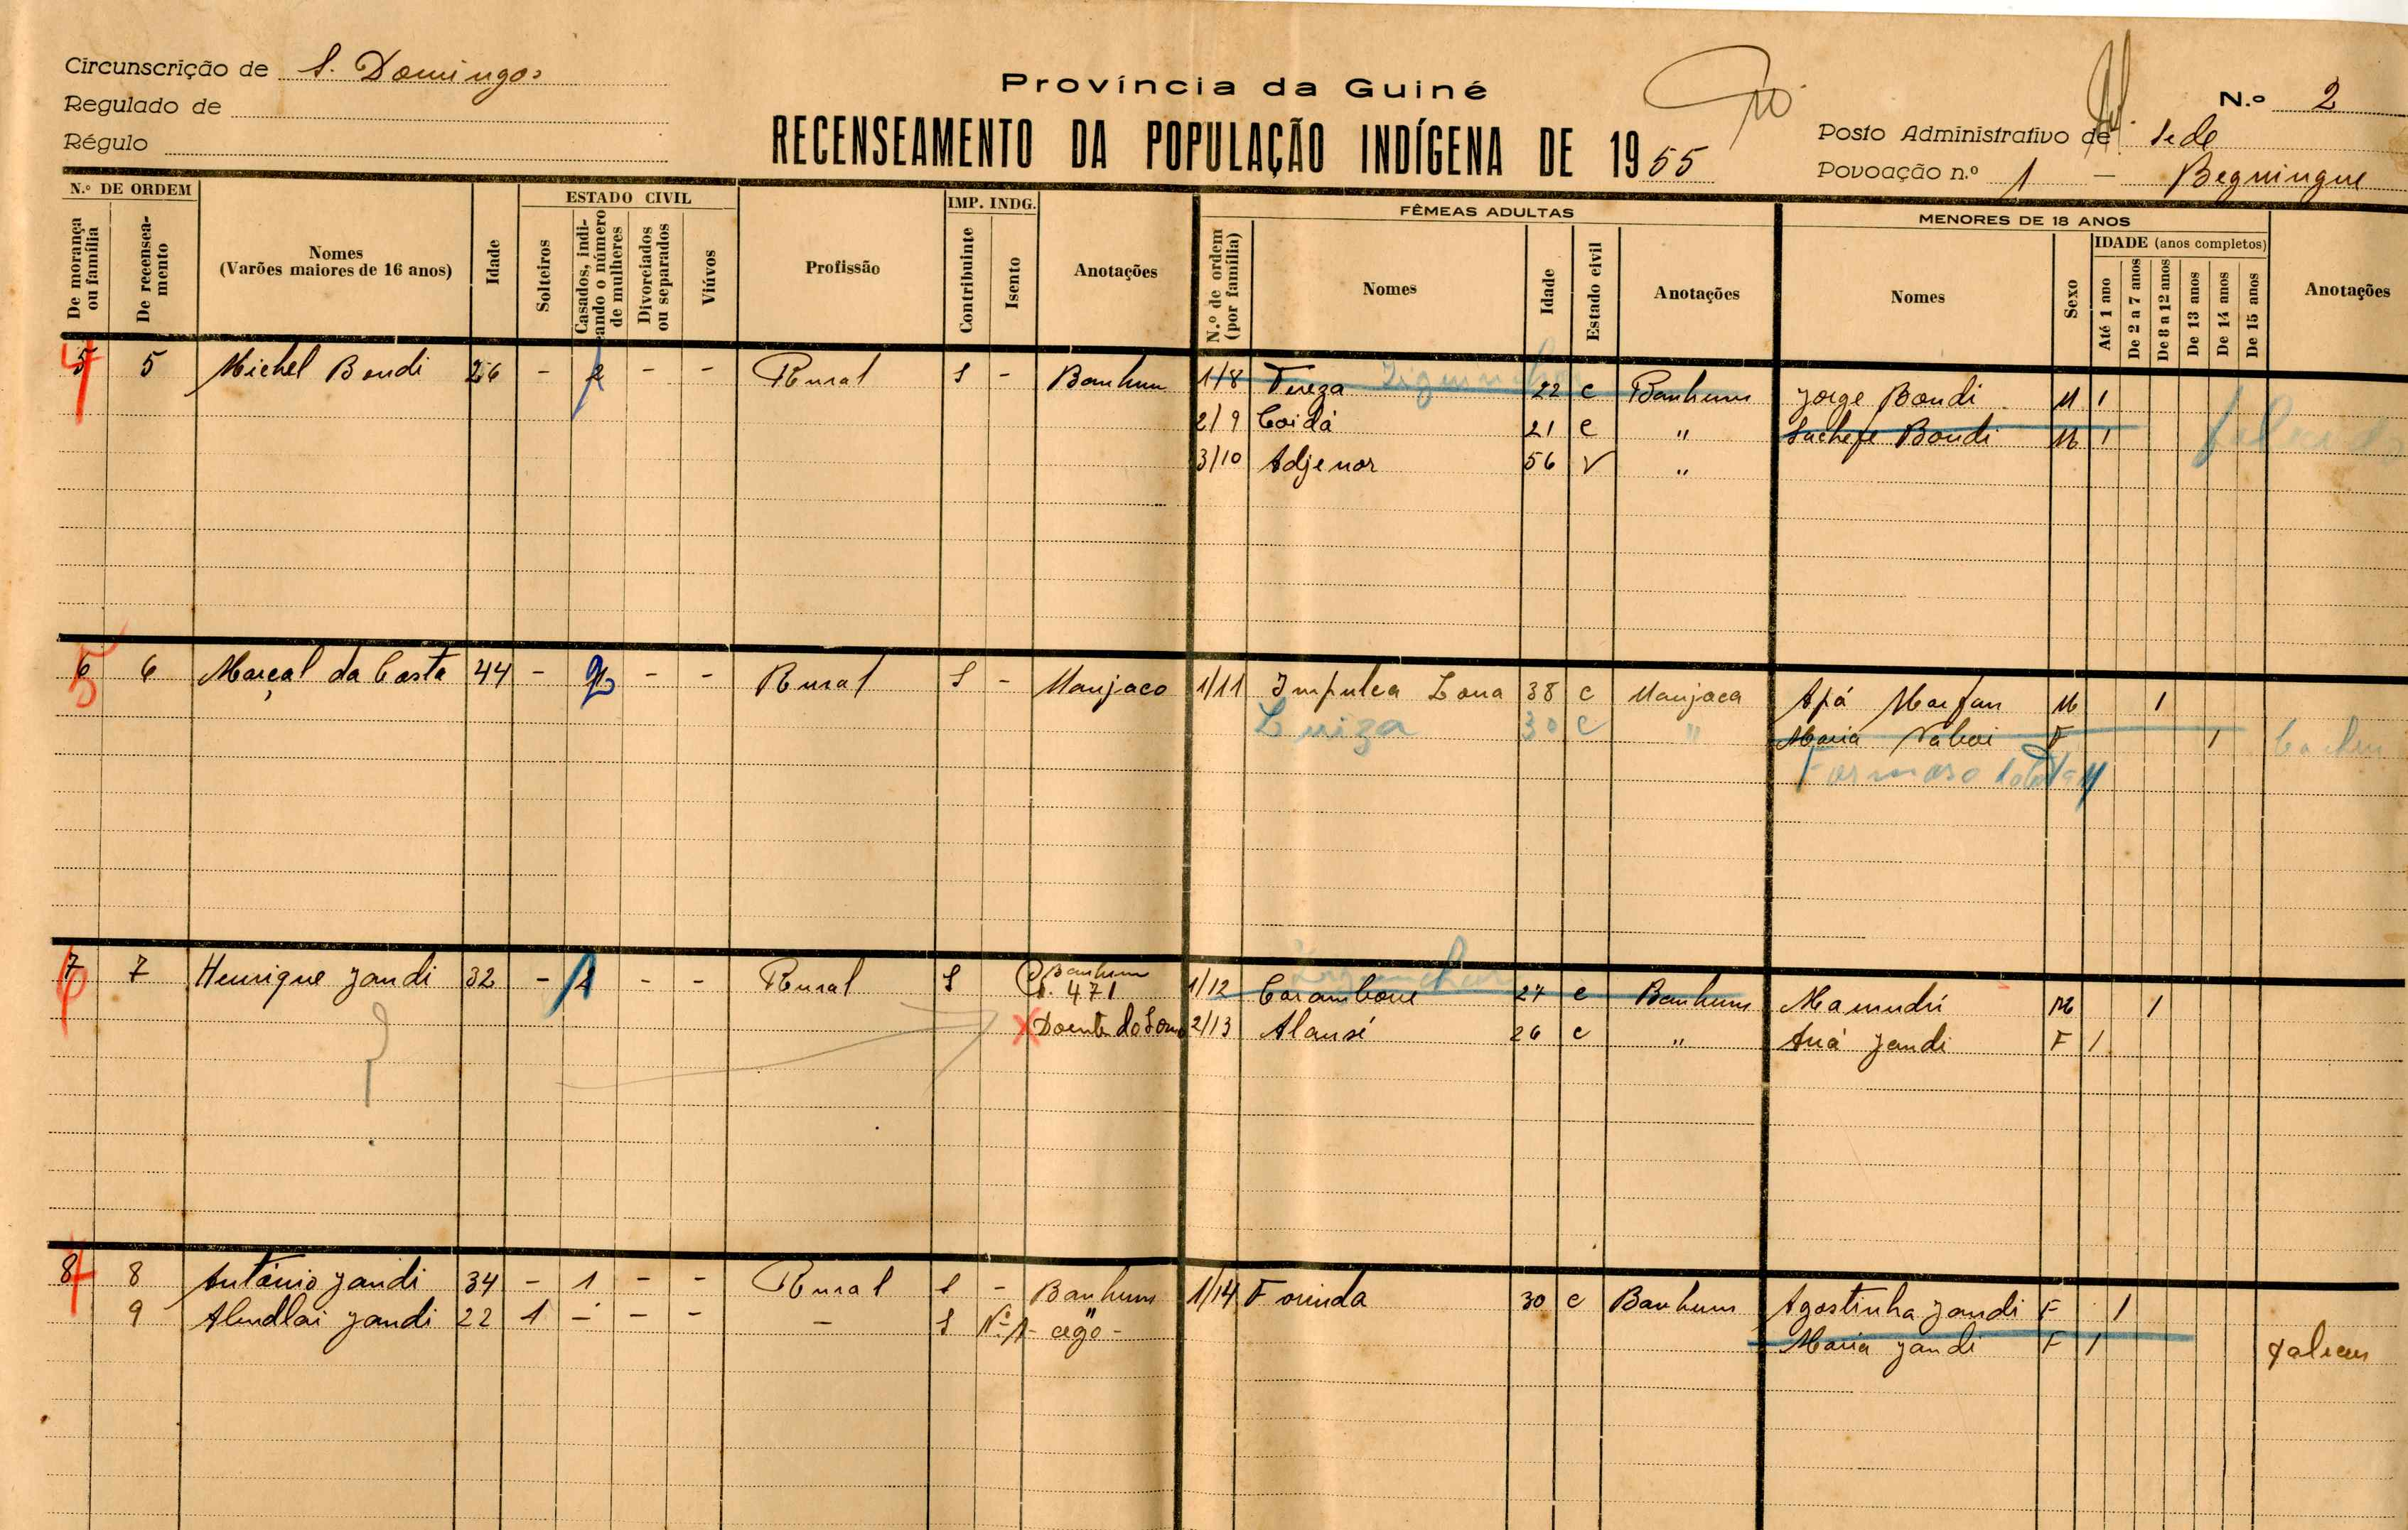 Circunscrição de S. Domingos
Regulado de
Régulo
Província da Guiné
RECENSEAMENTO DA POPULAÇÃO INDÍGENA DE 1955
N.º 2
Posto Administrativo de Sede
Povoação n.º 1 — Beguingue
N.º DE ORDEM
De morança ou família
De recenseamento
Nomes
(Varões maiores de 16 anos)
Idade
ESTADO CIVIL
Solteiros
Casados, indicando o número de mulheres
Divorciados ou separados
Viúvos
Profissão
IMP. INDG.
Contribuinte
Isento
Anotações
FÊMEAS ADULTAS
N.º de ordem (por família)
Nomes
Idade
Estado civil
Anotações
MENORES DE 18 ANOS
Nomes
Sexo
IDADE (anos completos)
Até 1 ano
De 2 a 7 anos
De 8 a 12 anos
De 13 anos
De 14 anos
De 15 anos
Anotações
5 4 5 Michel Bondi 26 - 2 - - Rural S - Banhum 1/8 Tereza 22 c Banhum Jorge Bondi M 1
2/9 Coidá 21 c " Bondi M 1
3/10 Adjenor 56 V "
6 5 6 Marçal da Costa 44 - 2 - - Rural S - Manjaco 1/11 Impulca Lona 38 c Manjaca Apá M 1
Luiza 30 c " Maria F 1
Formoso M
7 6 7 Henrique Jandi 32 - 1 - - Rural S Banhum 1/12 27 c Banhum Mamudú M 1
471
X Doente do Sono 2/13 Alansé 26 c " Aná Jandi F 1
8 7 8 António Jandi 34 - 1 - - Rural S - Banhum 1/14 Forinda 30 c Banhum Agostinha Jandi F 1
9 Jandi 22 1 - - - - S " cego - Maria Jandi F 1